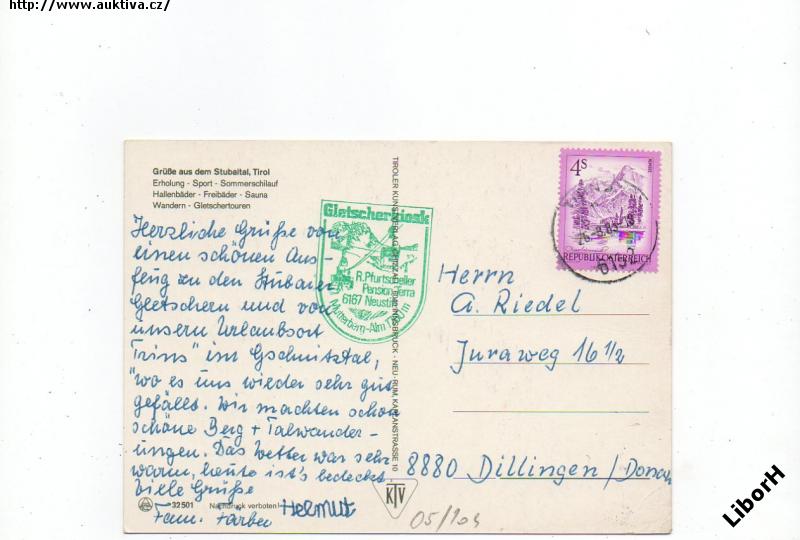 http://www.auktiva.cz/
Grüße aus dem Stubaital, Tirol
Erholung - Sport - Sommerschilauf
Hallenbäder - Freibäder - Sauna
Wandern - Gletschertouren
Herzliche Grüße von
einen schönen Aus-
flug zu den Stubaier
Gletschern und von
unsern Urlaubsort
"Trins" im Gschnitztal,
wo es uns wieder sehr gut
gefällt. Wir machten schon
schöne Berg + Talwander-
ungen. Das Wetter war sehr
warm, heute ist's bedeckt.
Viele Grüße
Fam. Färber
Helmut
32501 Nachdruck verboten!
Gletscherkiosk
R. Pfurtscheller
Pension
6167 Neustift
Mutterberg-Alm 1760m
TIROLER KUNSTVERLAG
INNSBRUCK - NEU-RUM, KAPLANSTRASSE 10
KTV
4S
REPUBLIK ÖSTERREICH
6152
Herrn
A. Riedel
Juraweg 16 1/2
8880 Dillingen/Donau
05/104
LiborH